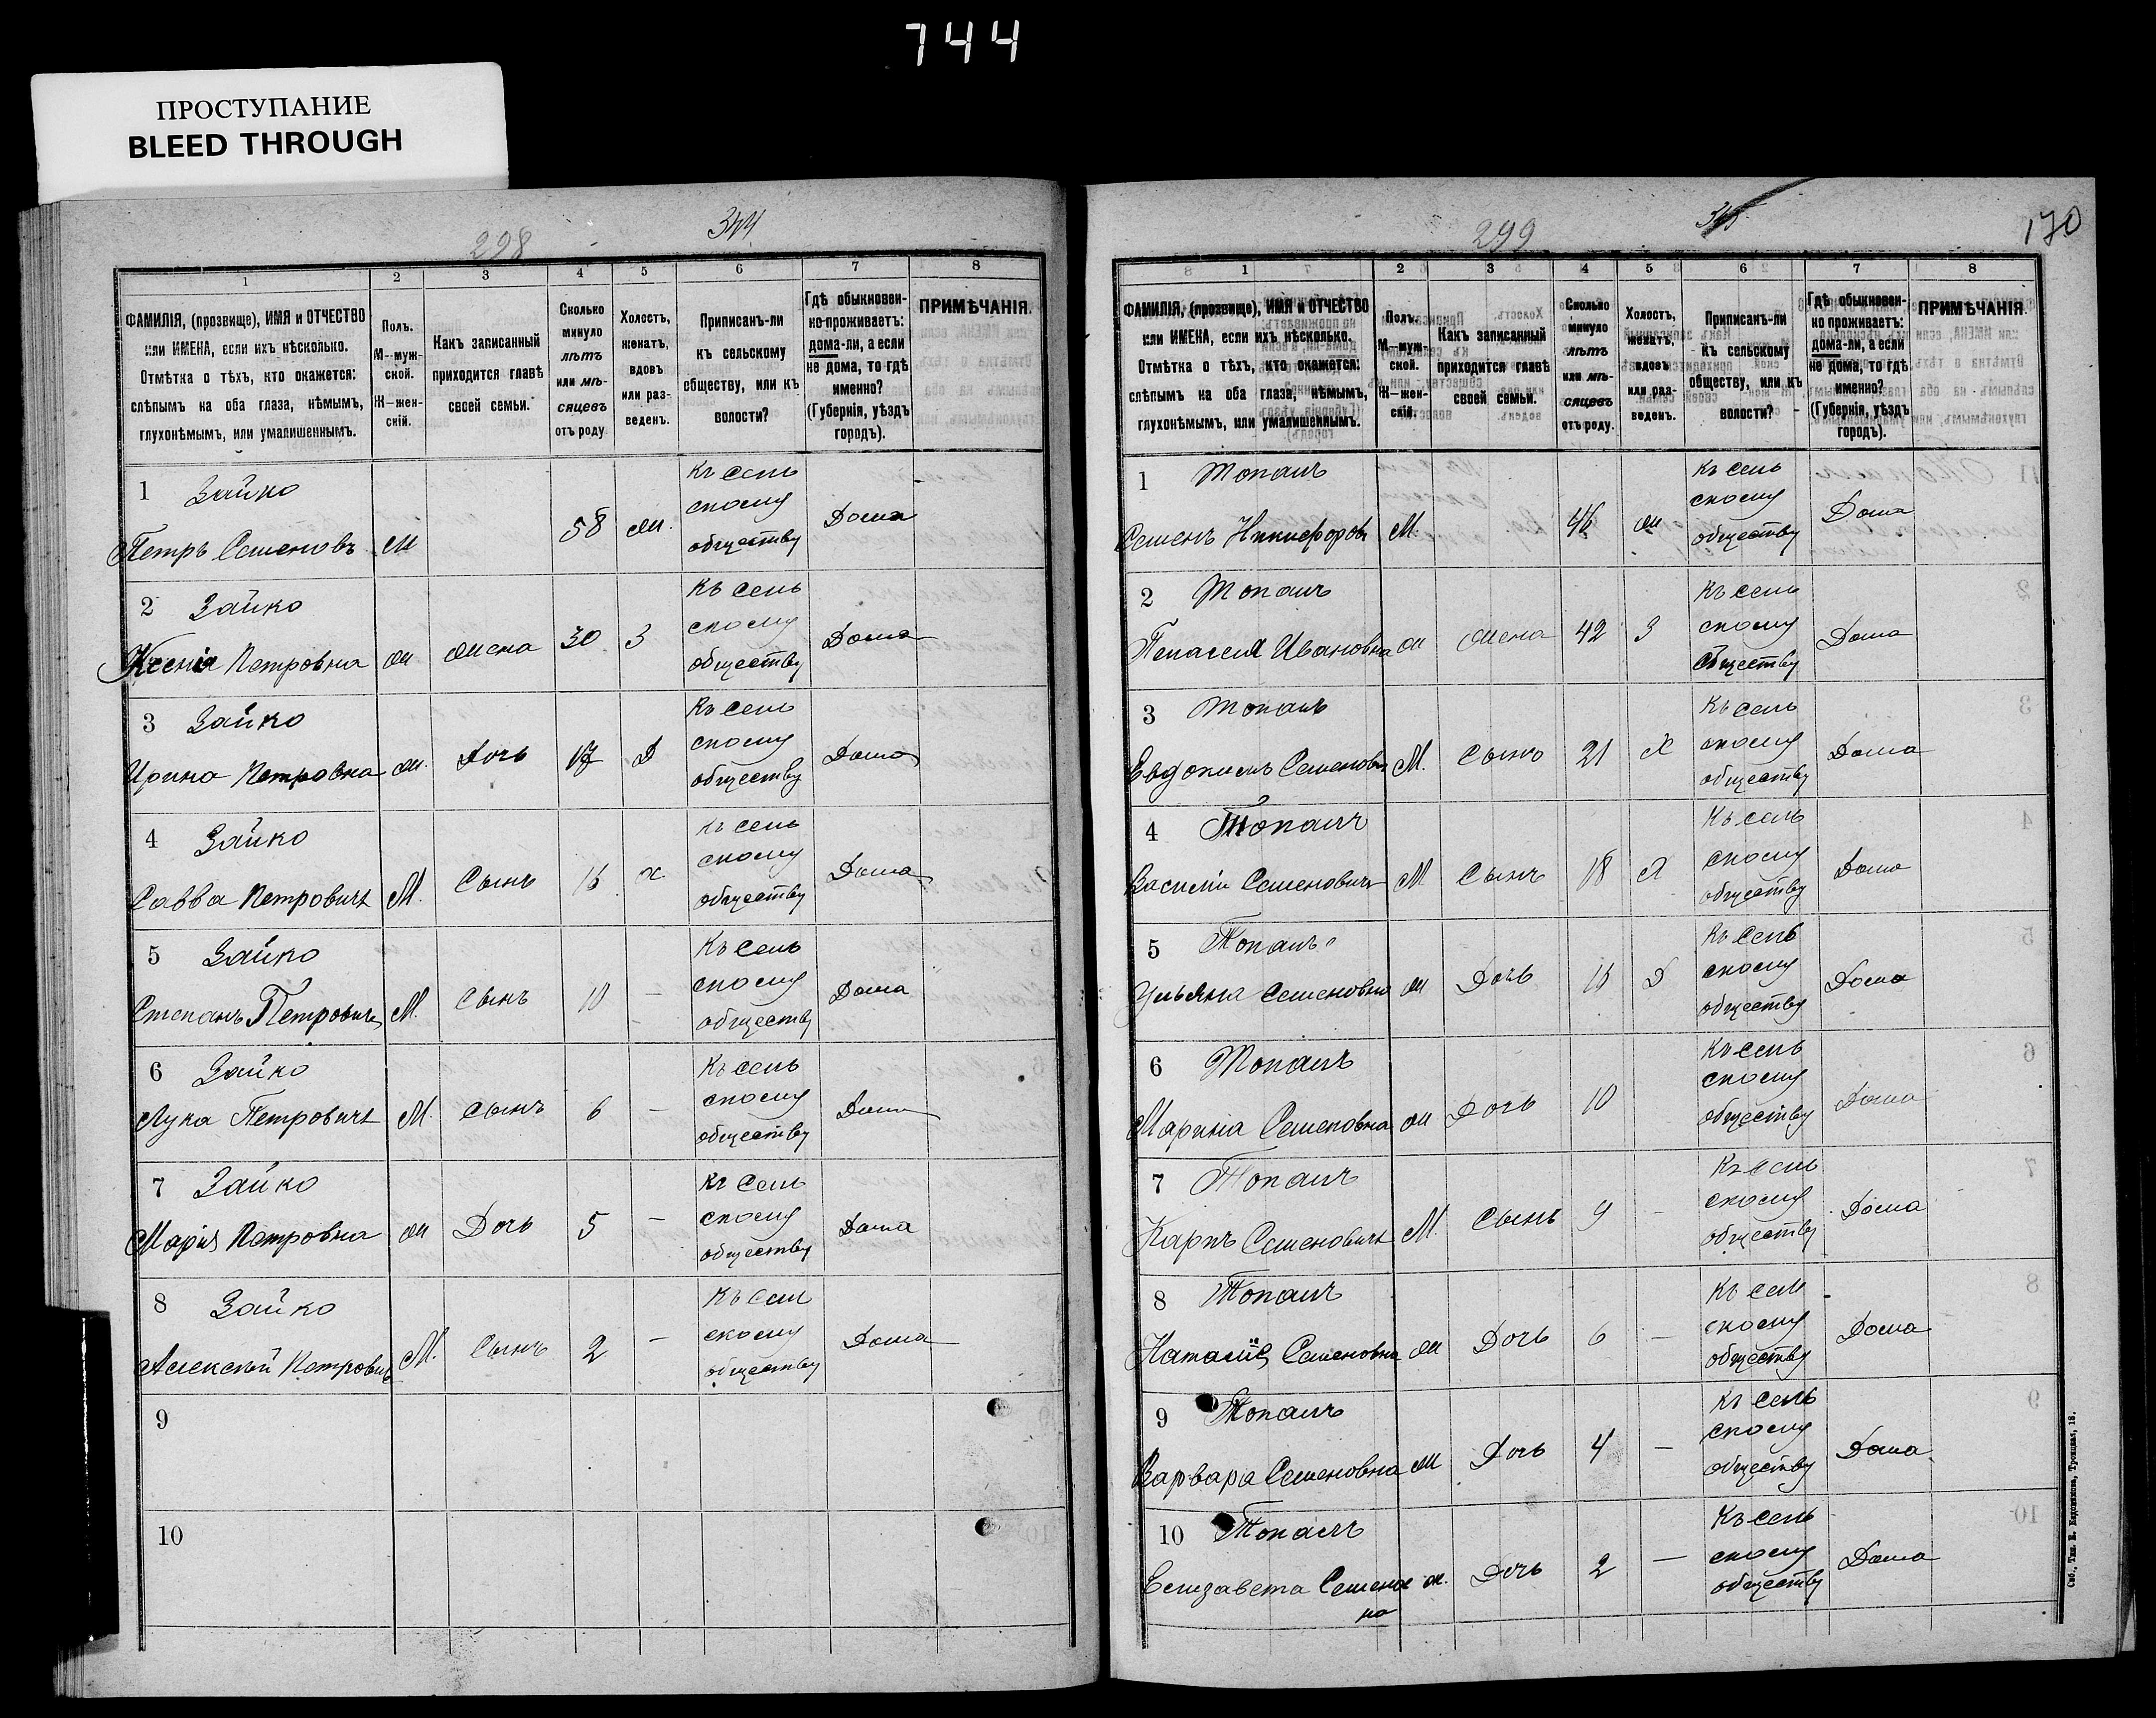 744
ПРОСТУПАНИЕ
BLEED THROUGH
298
344
1
2
3
4
5
6
7
8
ФАМИЛІЯ, (прозвище), ИМЯ и ОТЧЕСТВО
или ИМЕНА, если ихъ нѣсколько.
Отмѣтка о тѣхъ, кто окажется:
слѣпымъ на оба глаза, нѣмымъ,
глухонѣмымъ, или умалишеннымъ.
Полъ.
М—муж-
ской.
Ж—жен-
скій.
Какъ записанный
приходится главѣ
своей семьи.
Сколько
минуло
лѣтъ
или мѣ-
сяцевъ
отъ роду
Холостъ,
женатъ,
вдовъ
или раз-
веденъ.
Приписанъ-ли
къ сельскому
обществу, или къ
волости?
Гдѣ обыкновен-
но проживаетъ:
дома-ли, а если
не дома, то гдѣ
именно?
(Губернія, уѣздъ
городъ).
ПРИМѢЧАНІЯ.
1 Зайко
Петръ Семеновъ М 58 ж.
Къ сель
скому
обществу
Дома
2 Зайко
Ксенія Петровна ж жена 30 З
Къ сель
скому
обществу
Дома
3 Зайко
Ирина Петровна ж. Дочь 17 Д
Къ сель
скому
обществу
Дома
4 Зайко
Савва Петровичъ М. Сынъ х
Къ сель
скому
обществу
Дома
5 Зайко
Степанъ Петровичъ М. Сынъ 10 —
Къ сель
скому
обществу
Дома
6 Зайко
Лука Петровичъ М. Сынъ 6 —
Къ сель
скому
обществу
Дома
7 Зайко
Марія Петровна ж Дочь 5 —
Къ сель
скому
обществу
Дома
8 Зайко
Алексѣй Петровичъ М. Сынъ 2 —
Къ сель
скому
обществу
Дома
9
10
299
170
1
2
3
4
5
6
7
8
ФАМИЛІЯ, (прозвище), ИМЯ и ОТЧЕСТВО
или ИМЕНА, если ихъ нѣсколько.
Отмѣтка о тѣхъ, кто окажется:
слѣпымъ на оба глаза, нѣмымъ,
глухонѣмымъ, или умалишеннымъ.
Полъ.
М—муж-
ской.
Ж—жен-
скій.
Какъ записанный
приходится главѣ
своей семьи.
Сколько
минуло
лѣтъ
или мѣ-
сяцевъ
отъ роду.
Холостъ,
женатъ,
вдовъ
или раз-
веденъ.
Приписанъ-ли
къ сельскому
обществу, или къ
волости?
Гдѣ обыкновен-
но проживаетъ:
дома-ли, а если
не дома, то гдѣ
именно?
(Губернія, уѣздъ
городъ).
ПРИМѢЧАНІЯ.
1 Топалъ
Семенъ Никифоровъ М. 46 ж
Къ сель
скому
обществу
Дома
2 Топалъ
Пелагея Ивановна ж жена 42 З
Къ сель
скому
обществу
Дома
3 Топалъ
Евдокимъ Семеновъ М. Сынъ 21 Х
Къ сель
скому
обществу
Дома
4 Топалъ
Василій Семеновичъ М Сынъ 18 Х
Къ сель
скому
обществу
Дома
5 Топалъ
Ульяна Семеновна ж Дочь Д
Къ сель
скому
обществу
Дома
6 Топалъ
Марина Семеновна ж Дочь 10
Къ сель
скому
обществу
Дома
7 Топалъ
Карпъ Семеновичъ М. Сынъ 9 -
Къ сель
скому
обществу
Дома
8 Топалъ
Наталія Семеновна ж Дочь 6 —
Къ сель
скому
обществу
Дома
9 Топалъ
Варвара Семеновна ж Дочь 4 —
Къ сель
скому
обществу
Дома
10 Топалъ
Елизавета Семенов ж. Дочь 2 —
на
Къ сель
скому
обществу
Дома
Спб., Тип. Е. Евдокимова, Троицкая, 18.